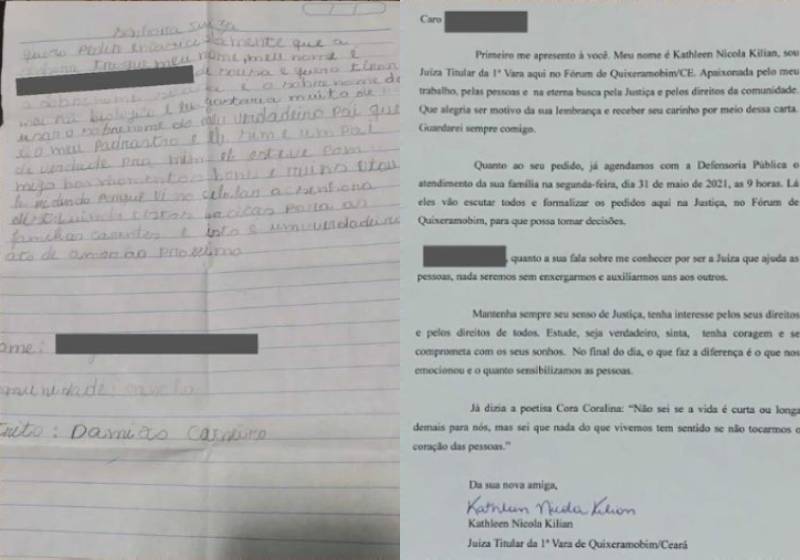 Senhora Juiza
quero Pedir encarecidamente que a
meu nome meu nome é
de sousa e quero tirar
o sobrenome
gostaria muito de
usar o sobrenome do meu verdadeiro pai que
é o meu Padrasto e ele sim e um pai
de verdade pra mim ele esteve com
migo nos momentos bons e ruins
Porque Vi no celular a senhora
cestas basicas para as
familhas carentes e isto é um verdadeiro
ato de amor ao proximo
ome:
munidade:
trito: Damião Carneiro
Caro
Primeiro me apresento à você. Meu nome é Kathleen Nicola Kilian, sou
Juiza Titular da 1ª Vara aqui no Fórum de Quixeramobim/CE. Apaixonada pelo meu
trabalho, pelas pessoas e na eterna busca pela Justiça e pelos direitos da comunidade.
Que alegria ser motivo da sua lembrança e receber seu carinho por meio dessa carta.
Guardarei sempre comigo.
Quanto ao seu pedido, já agendamos com a Defensoria Pública o
atendimento da sua família na segunda-feira, dia 31 de maio de 2021, as 9 horas. Lá
eles vão escutar todos e formalizar os pedidos aqui na Justiça, no Fórum de
Quixeramobim, para que possa tomar decisões.
, quanto a sua fala sobre me conhecer por ser a Juíza que ajuda as
pessoas, nada seremos sem enxergarmos e auxiliarmos uns aos outros.
Mantenha sempre seu senso de Justiça, tenha interesse pelos seus direitos
e pelos direitos de todos. Estude, seja verdadeiro, sinta, tenha coragem e se
comprometa com os seus sonhos. No final do dia, o que faz a diferença é o que nos
emocionou e o quanto sensibilizamos as pessoas.
Já dizia a poetisa Cora Coralina: “Não sei se a vida é curta ou longa
demais para nós, mas sei que nada do que vivemos tem sentido se não tocarmos o
coração das pessoas.”
Da sua nova amiga,
Kathleen Nicola Kilian
Kathleen Nicola Kilian
Juiza Titular da 1ª Vara de Quixeramobim/Ceará